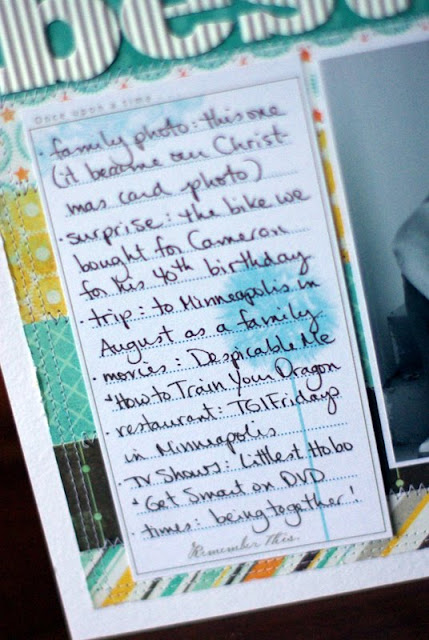 best
Once upon a time
· family photo: this one
(it became our Christ-
mas card photo)
· surprise: the bike we
bought for Cameron
for his 40th birthday
· trip: to Minneapolis in
August as a family
· movies: Despicable Me
+ How to Train Your Dragon
· restaurant: TGIFridays
in Minneapolis
· TV Shows: Littlest Hobo
+ Get Smart on DVD
· times: being together!
Remember This.